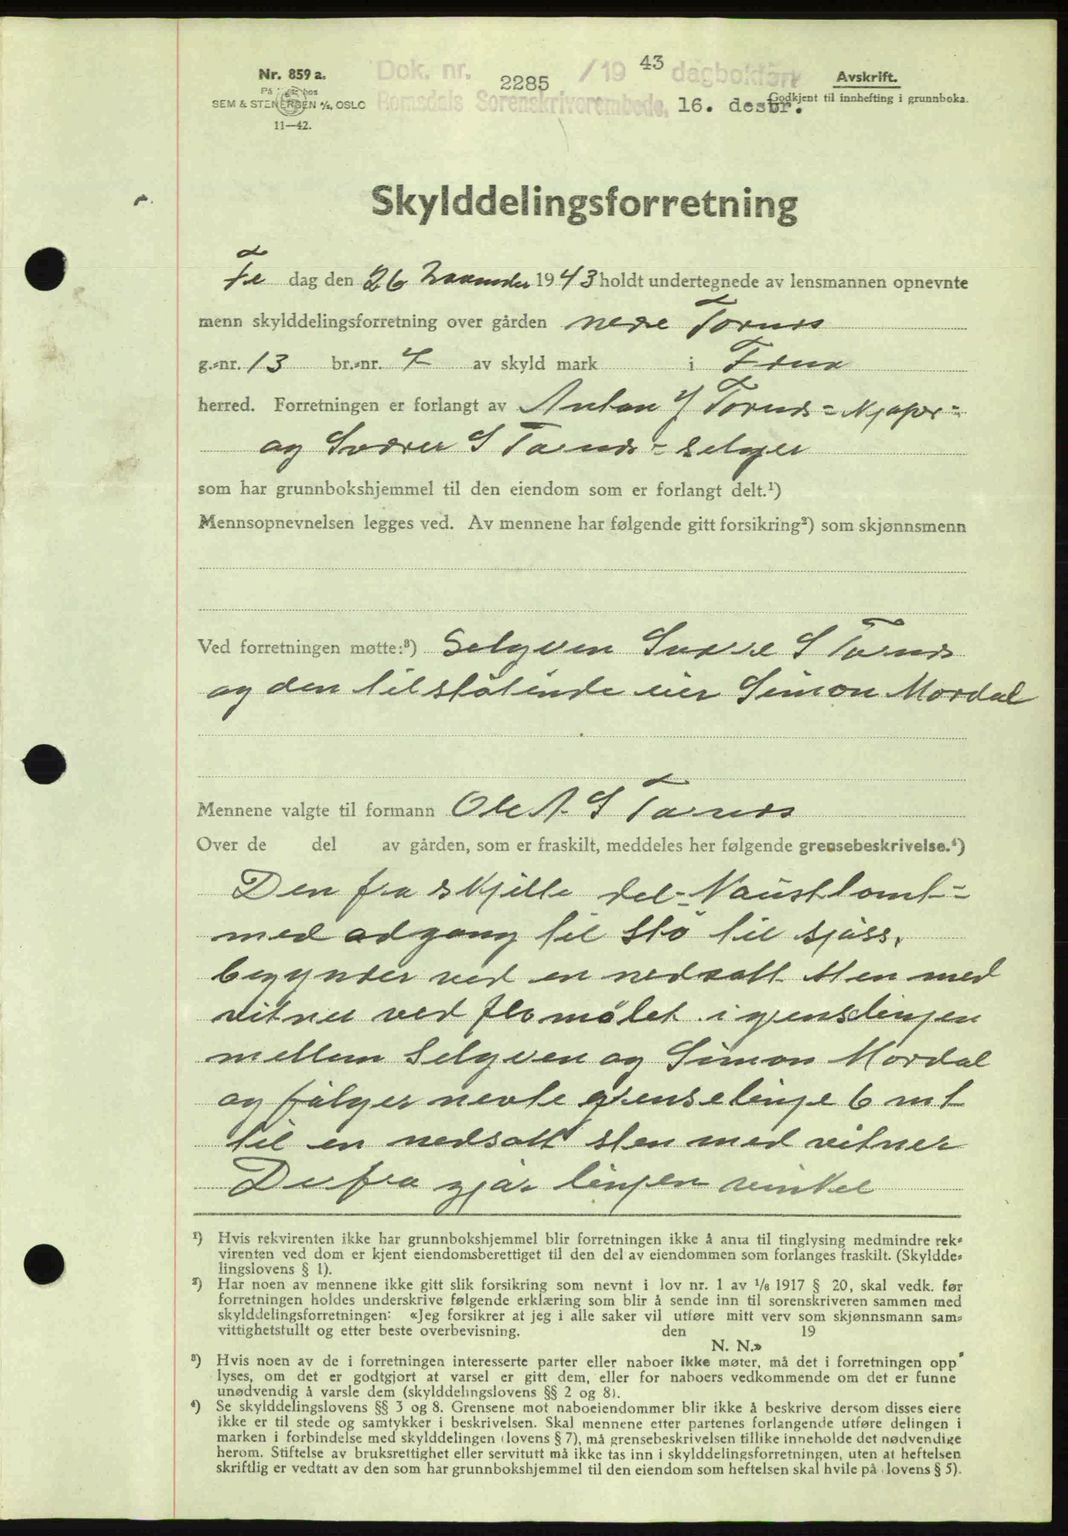 Nr. 859 a.
SEM & STENERSEN A/S, OSLO
11—42.
Dok. nr. 2285 /19 43 dagbokført
Romsdals Sorenskriverembede, 16. desbr.
Avskrift.
Godkjent til innhefting i grunnboka.
Skylddelingsforretning
Fre dag den 26 November 1943 holdt undertegnede av lensmannen opnevnte
menn skylddelingsforretning over gården nedre Tornes
g.-nr. 13 br.-nr. 4 av skyld mark i Fræna
herred. Forretningen er forlangt av Anton J Tornes = Kjøper =
og Sverre S Tornes = Selger
som har grunnbokshjemmel til den eiendom som er forlangt delt.¹)
Mennsopnevnelsen legges ved. Av mennene har følgende gitt forsikring²) som skjønnsmenn
Ved forretningen møtte:³) Selgeren Sverre S Tornes
og den tilstøtende eier Simon Mordal
Mennene valgte til formann Ole A. S Tornes
Over de del av gården, som er fraskilt, meddeles her følgende grensebeskrivelse.⁴)
Den fraskjilte del = Nausttomt =
med adgang til stø til sjøss,
begynder ved en nedsatt sten med
vitner ved flomålet i grenselinjen
mellem Selgeren og Simon Mordal
og følger nevte grenselinje 6 mt
til en nedsatt sten med vitner
Derfra gjør linjen vinkel
¹) Hvis rekvirenten ikke har grunnbokshjemmel blir forretningen ikke å anta til tinglysing medmindre rek-
virenten ved dom er kjent eiendomsberettiget til den del av eiendommen som forlanges fraskilt. (Skyldde-
lingslovens § 1).
²) Har noen av mennene ikke gitt slik forsikring som nevnt i lov nr. 1 av 1/6 1917 § 20, skal vedk. før
forretningen holdes underskrive følgende erklæring som blir å sende inn til sorenskriveren sammen med
skylddelingsforretningen: «Jeg forsikrer at jeg i alle saker vil utføre mitt verv som skjønnsmann sam-
vittighetsfullt og etter beste overbevisning. den 19
N. N.»
³) Hvis noen av de i forretningen interesserte parter eller naboer ikke møter, må det i forretningen opp
lyses, om det er godtgjort at varsel er gitt dem, eller for naboers vedkommende om det er funne
unødvendig å varsle dem (skylddelingslovens §§ 2 og 8).
⁴) Se skylddelingslovens §§ 3 og 8. Grensene mot naboeiendommer blir ikke å beskrive dersom disses eiere
ikke er til stede og samtykker i beskrivelsen. Skal mennene etter partenes forlangende utføre delingen i
marken i forbindelse med skylddelingen (lovens § 7), må grensebeskrivelsen tillike inneholde det nødvendige
herom. Stiftelse av bruksrettighet eller servitutt må ikke tas inn i skylddelingsforretningen, uten at heftelsen
skriftlig er vedtatt av den som har grunnbokshjemmel til den eiendom som heftelsen skal hvile på (lovens § 5).